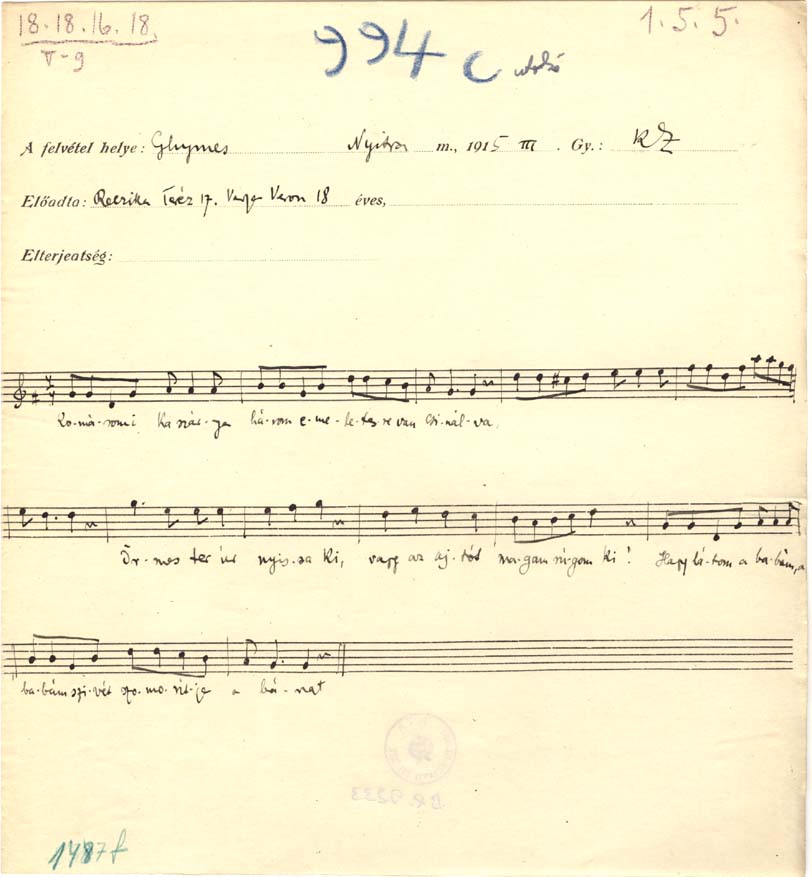 18.18.16.18. 1.5.5.
V-9 994 c utolsó
A felvétel helye: Ghymes Nyitra m., 1915 III . Gy.: KZ
Előadta: Reczika Teréz 17. Varga Veron 18 éves,
Elterjeatség:
Ko-má-romi ka szár-nya há-rom e-me-le-tes-re van csi-nál-va,
Őr-mes ter úr nyis-sa ki, vagy az aj-tót ma-gam rú-gom ki! Hagy lá-tom a ba-bám, a
ba-bám szi-vét szo-mo-rít-ja a bá-nat
BR 9233
1487f